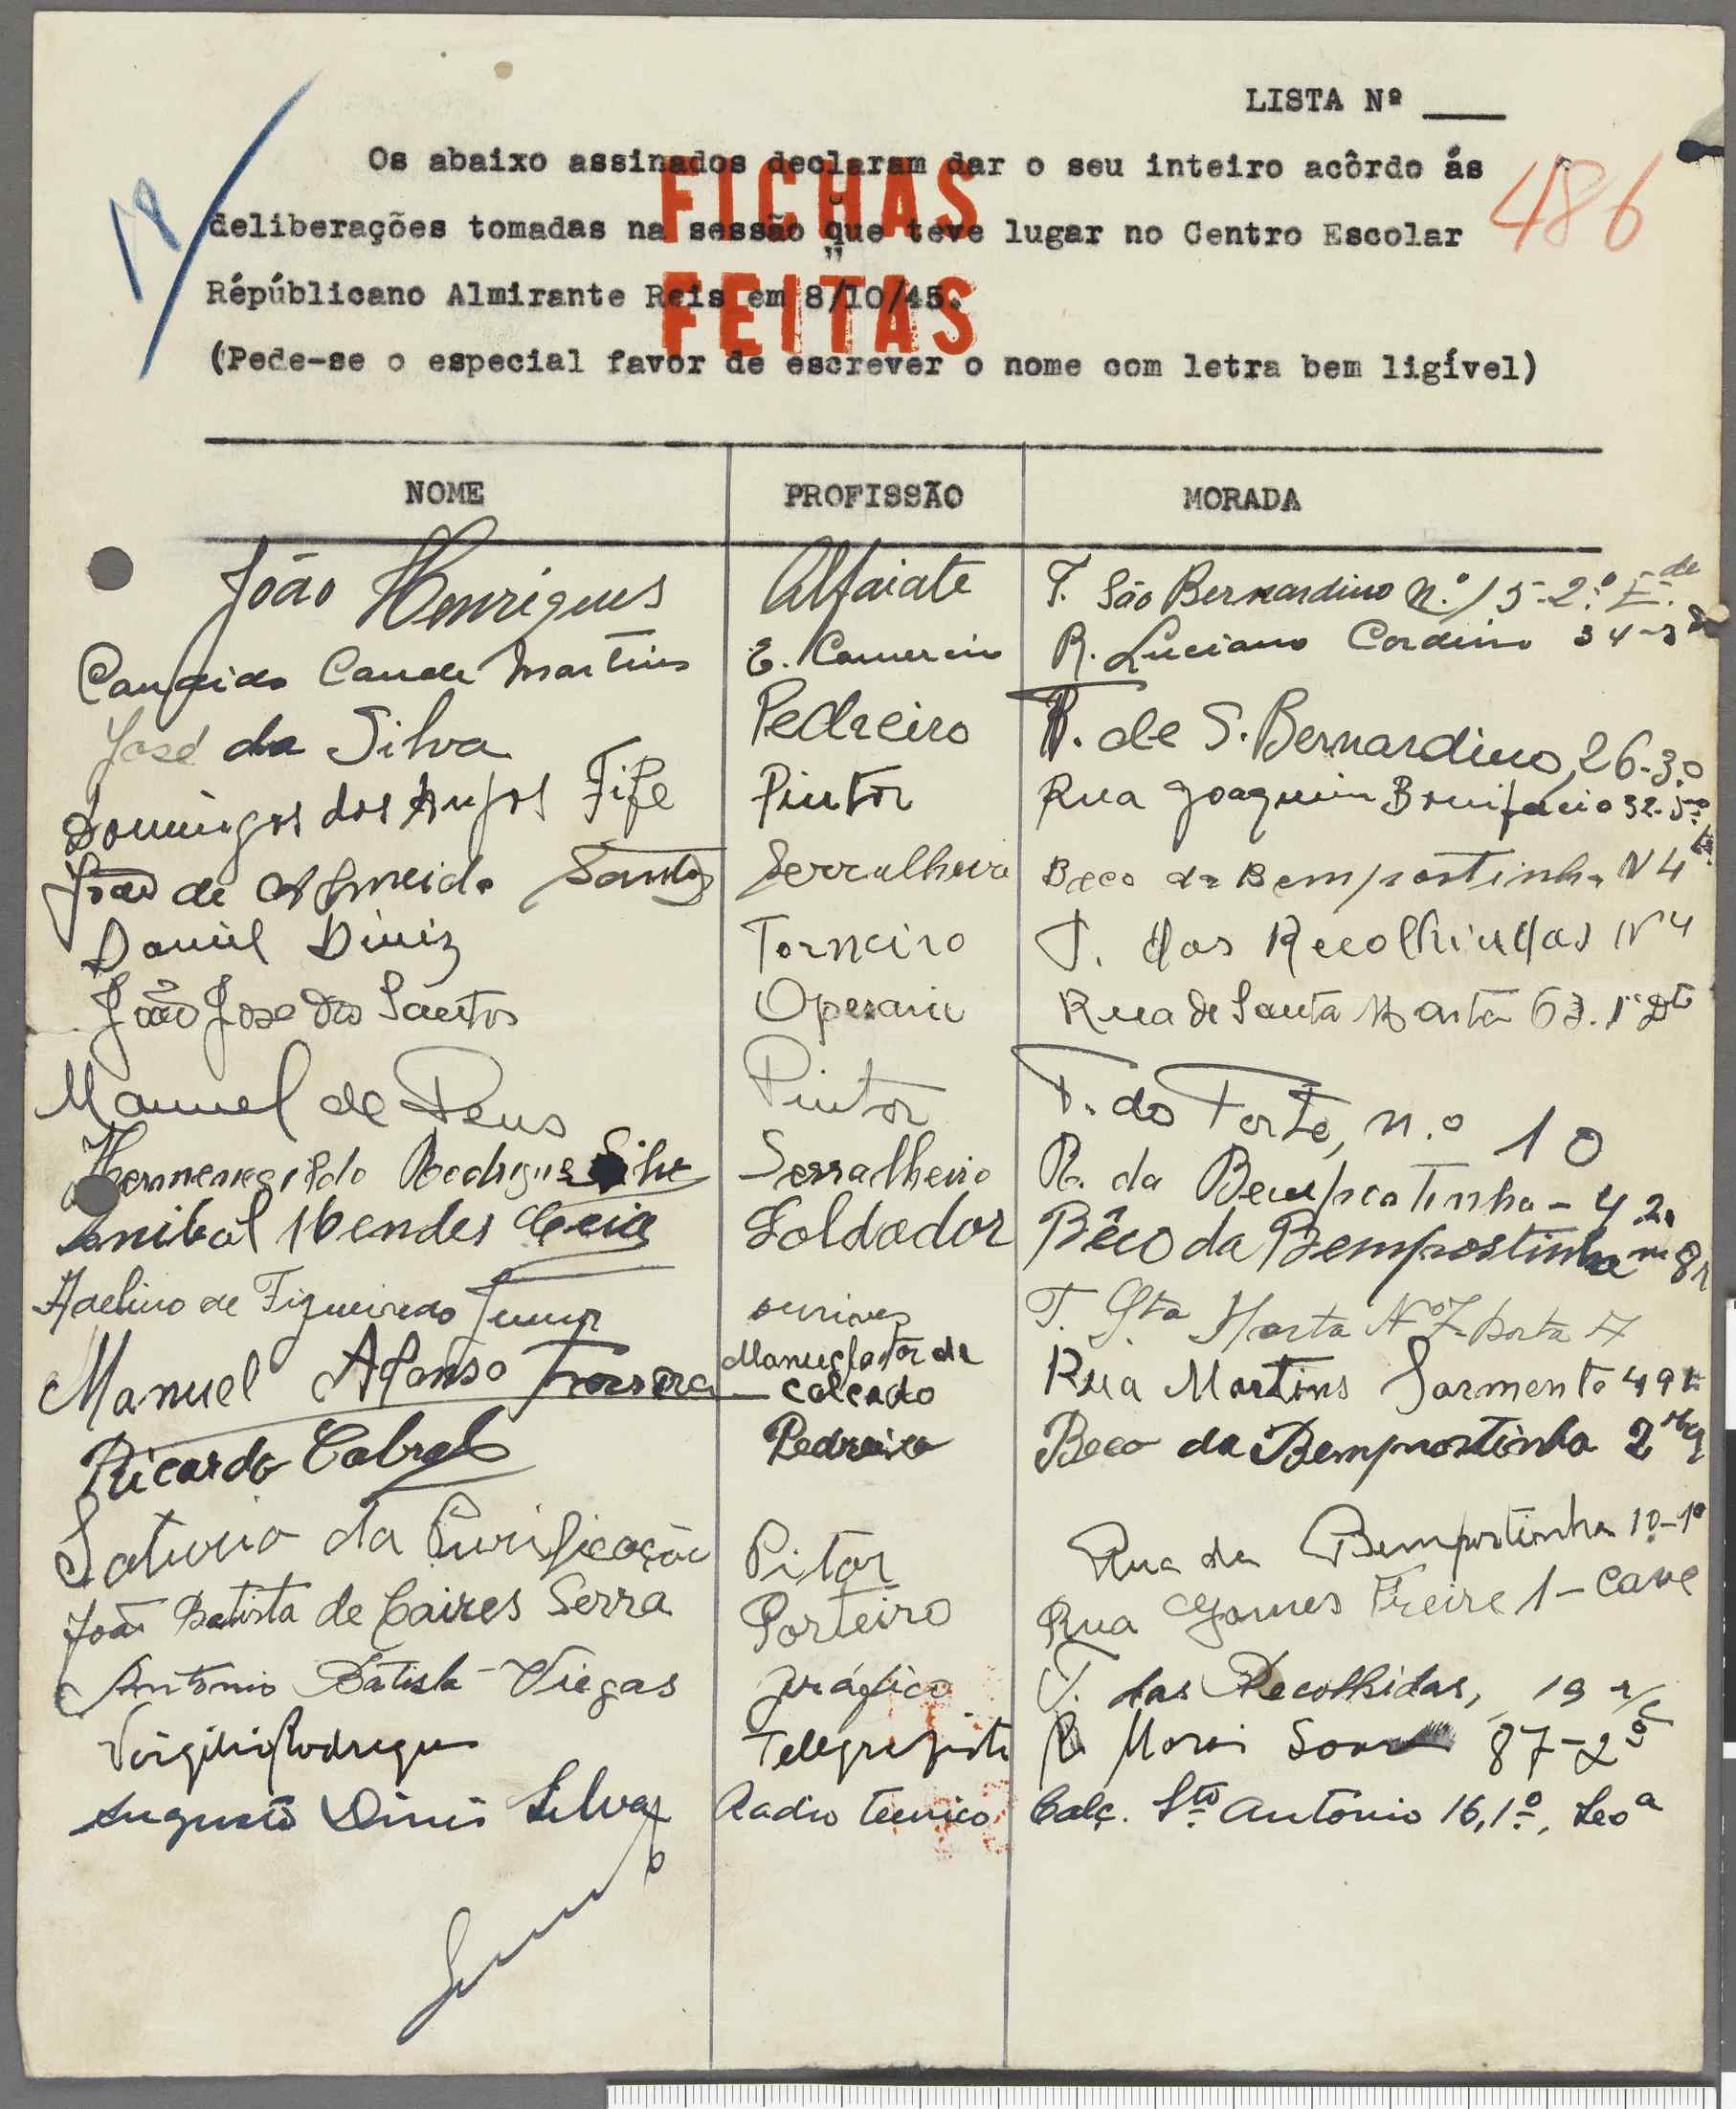 LISTA Nº ____
Os abaixo assinados declaram dar o seu inteiro acôrdo ás
deliberações tomadas na sessão que teve lugar no Centro Escolar
Répúblicano Almirante Reis em 8/10/45.
(Pede-se o especial favor de escrever o nome com letra bem ligível)
FICHAS
FEITAS
486
NOME PROFISSÃO MORADA
João Henriques Alfaiate T. São Bernardino n.º 15-2.º E.
Candido Martins E. Comercio R. Luciano Cordeiro 34-3
José da Silva Pedreiro T. de S. Bernardino, 26-3.º
Domingos dos Anjos Fife Pintor Rua Joaquim Bonifacio 32-
João de Almeida Santos Serralheiro Beco da Bempostinha N 4
Daniel Diniz Torneiro T. das Recolhidas Nº 4
João José dos Santos Operario Rua de Santa Marta 63. 1º Dtº
Manuel de Deus Pintor T. do Torto, n.º 10
Hermenegildo Rodrigues Silva Serralheiro R. da Bempostinha - 42.
Anibal Mendes Ceia Soldador Bêco da Bempostinha nº 8
Adelino de Figueiredo Junior ourives T. Sta Marta Nº 7 Porta 7
Manuel Afonso Manuflator de
calcado Rua Martins Sarmento 49
Ricardo Cabral Pedreiro Beco da Bempostinha 2
Saturio da Purificação Pitor Rua da Bempostinha 10-1º
João Batista de Caires Serra Porteiro Rua Gomes Freire 1-Cave
Antonio Batista Viegas gráfico T. das Recolhidas, 19 r/c
Virgilio Rodrigues Telegrafista R Morais Soares 87-2º
Augusto Dinis Silva Radio tecnico Calç. Stº António 16, 1º, Lxa